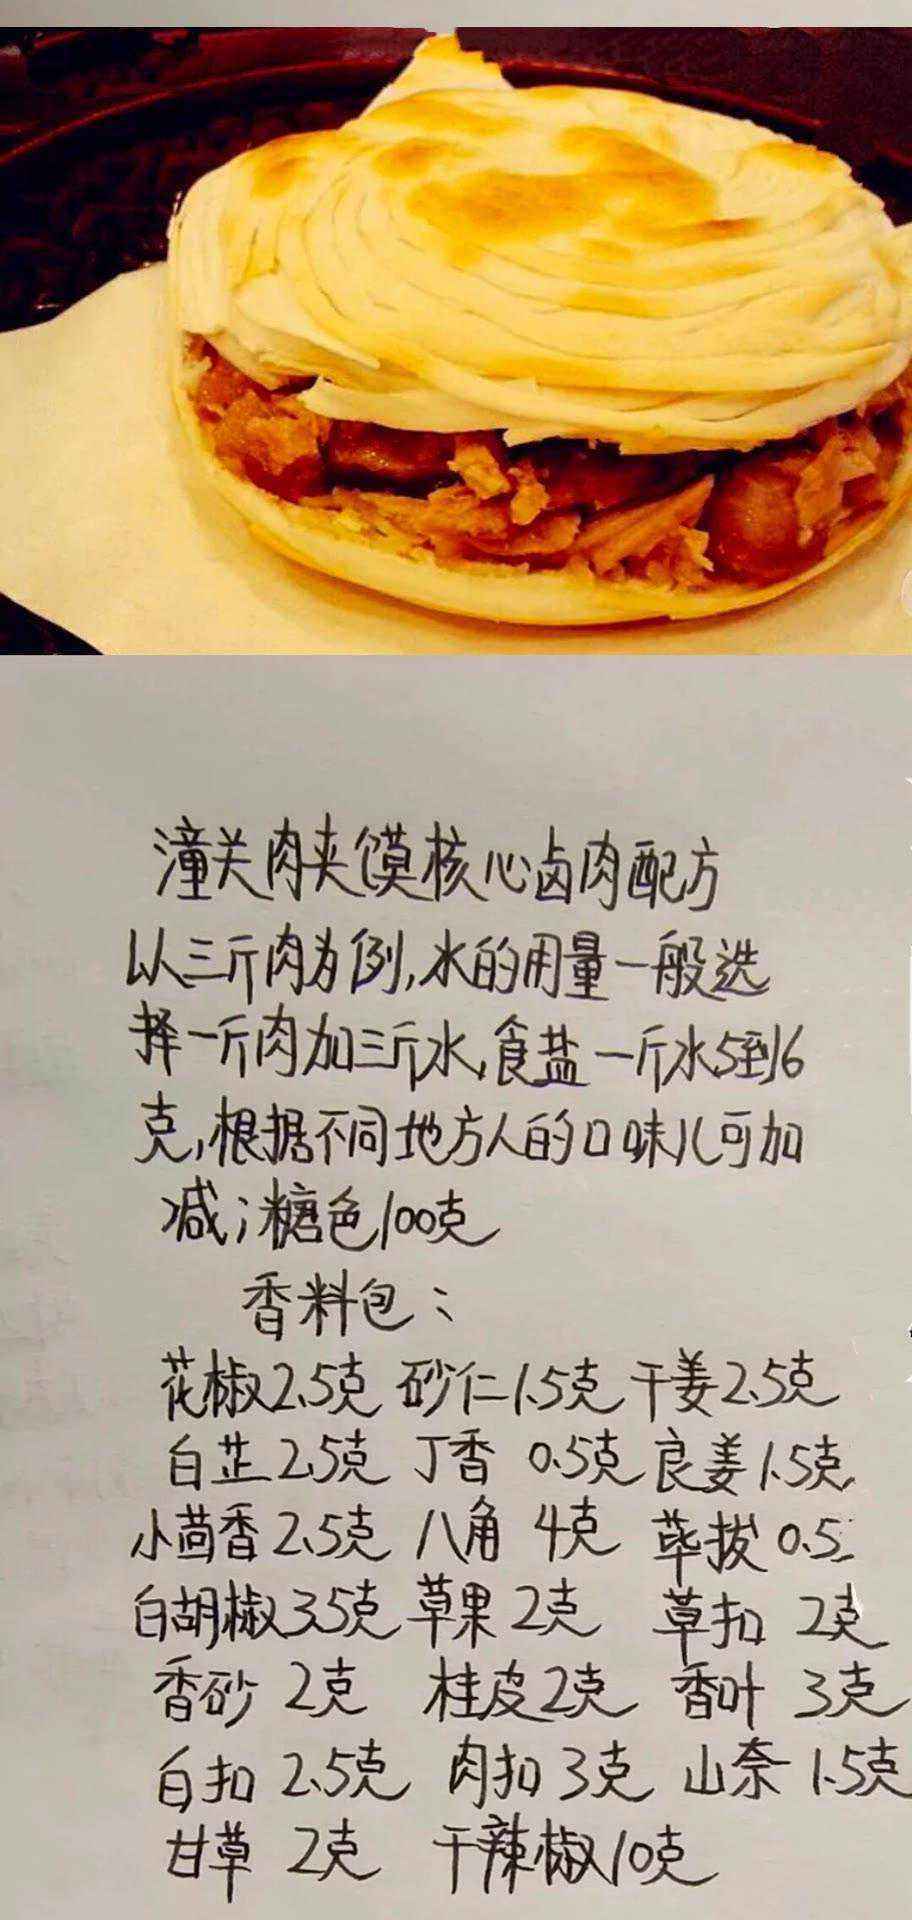 潼关肉夹馍核心卤肉配方
以三斤肉为例,水的用量一般选
择一斤肉加三斤水,食盐一斤水5到6
克,根据不同地方人的口味儿可加
减;糖色100克
香料包:
花椒2.5克 砂仁1.5克 干姜2.5克
白芷2.5克 丁香 0.5克 良姜1.5克
小茴香2.5克 八角 4克 荜拔0.5
白胡椒3.5克 草果 2克 草扣 2克
香砂 2克 桂皮2克 香叶 3克
白扣 2.5克 肉扣3克 山奈 1.5克
甘草 2克 干辣椒10克